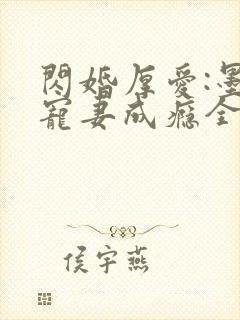 閃婚厚愛:墨
寵妻成癮全
侯宇燕